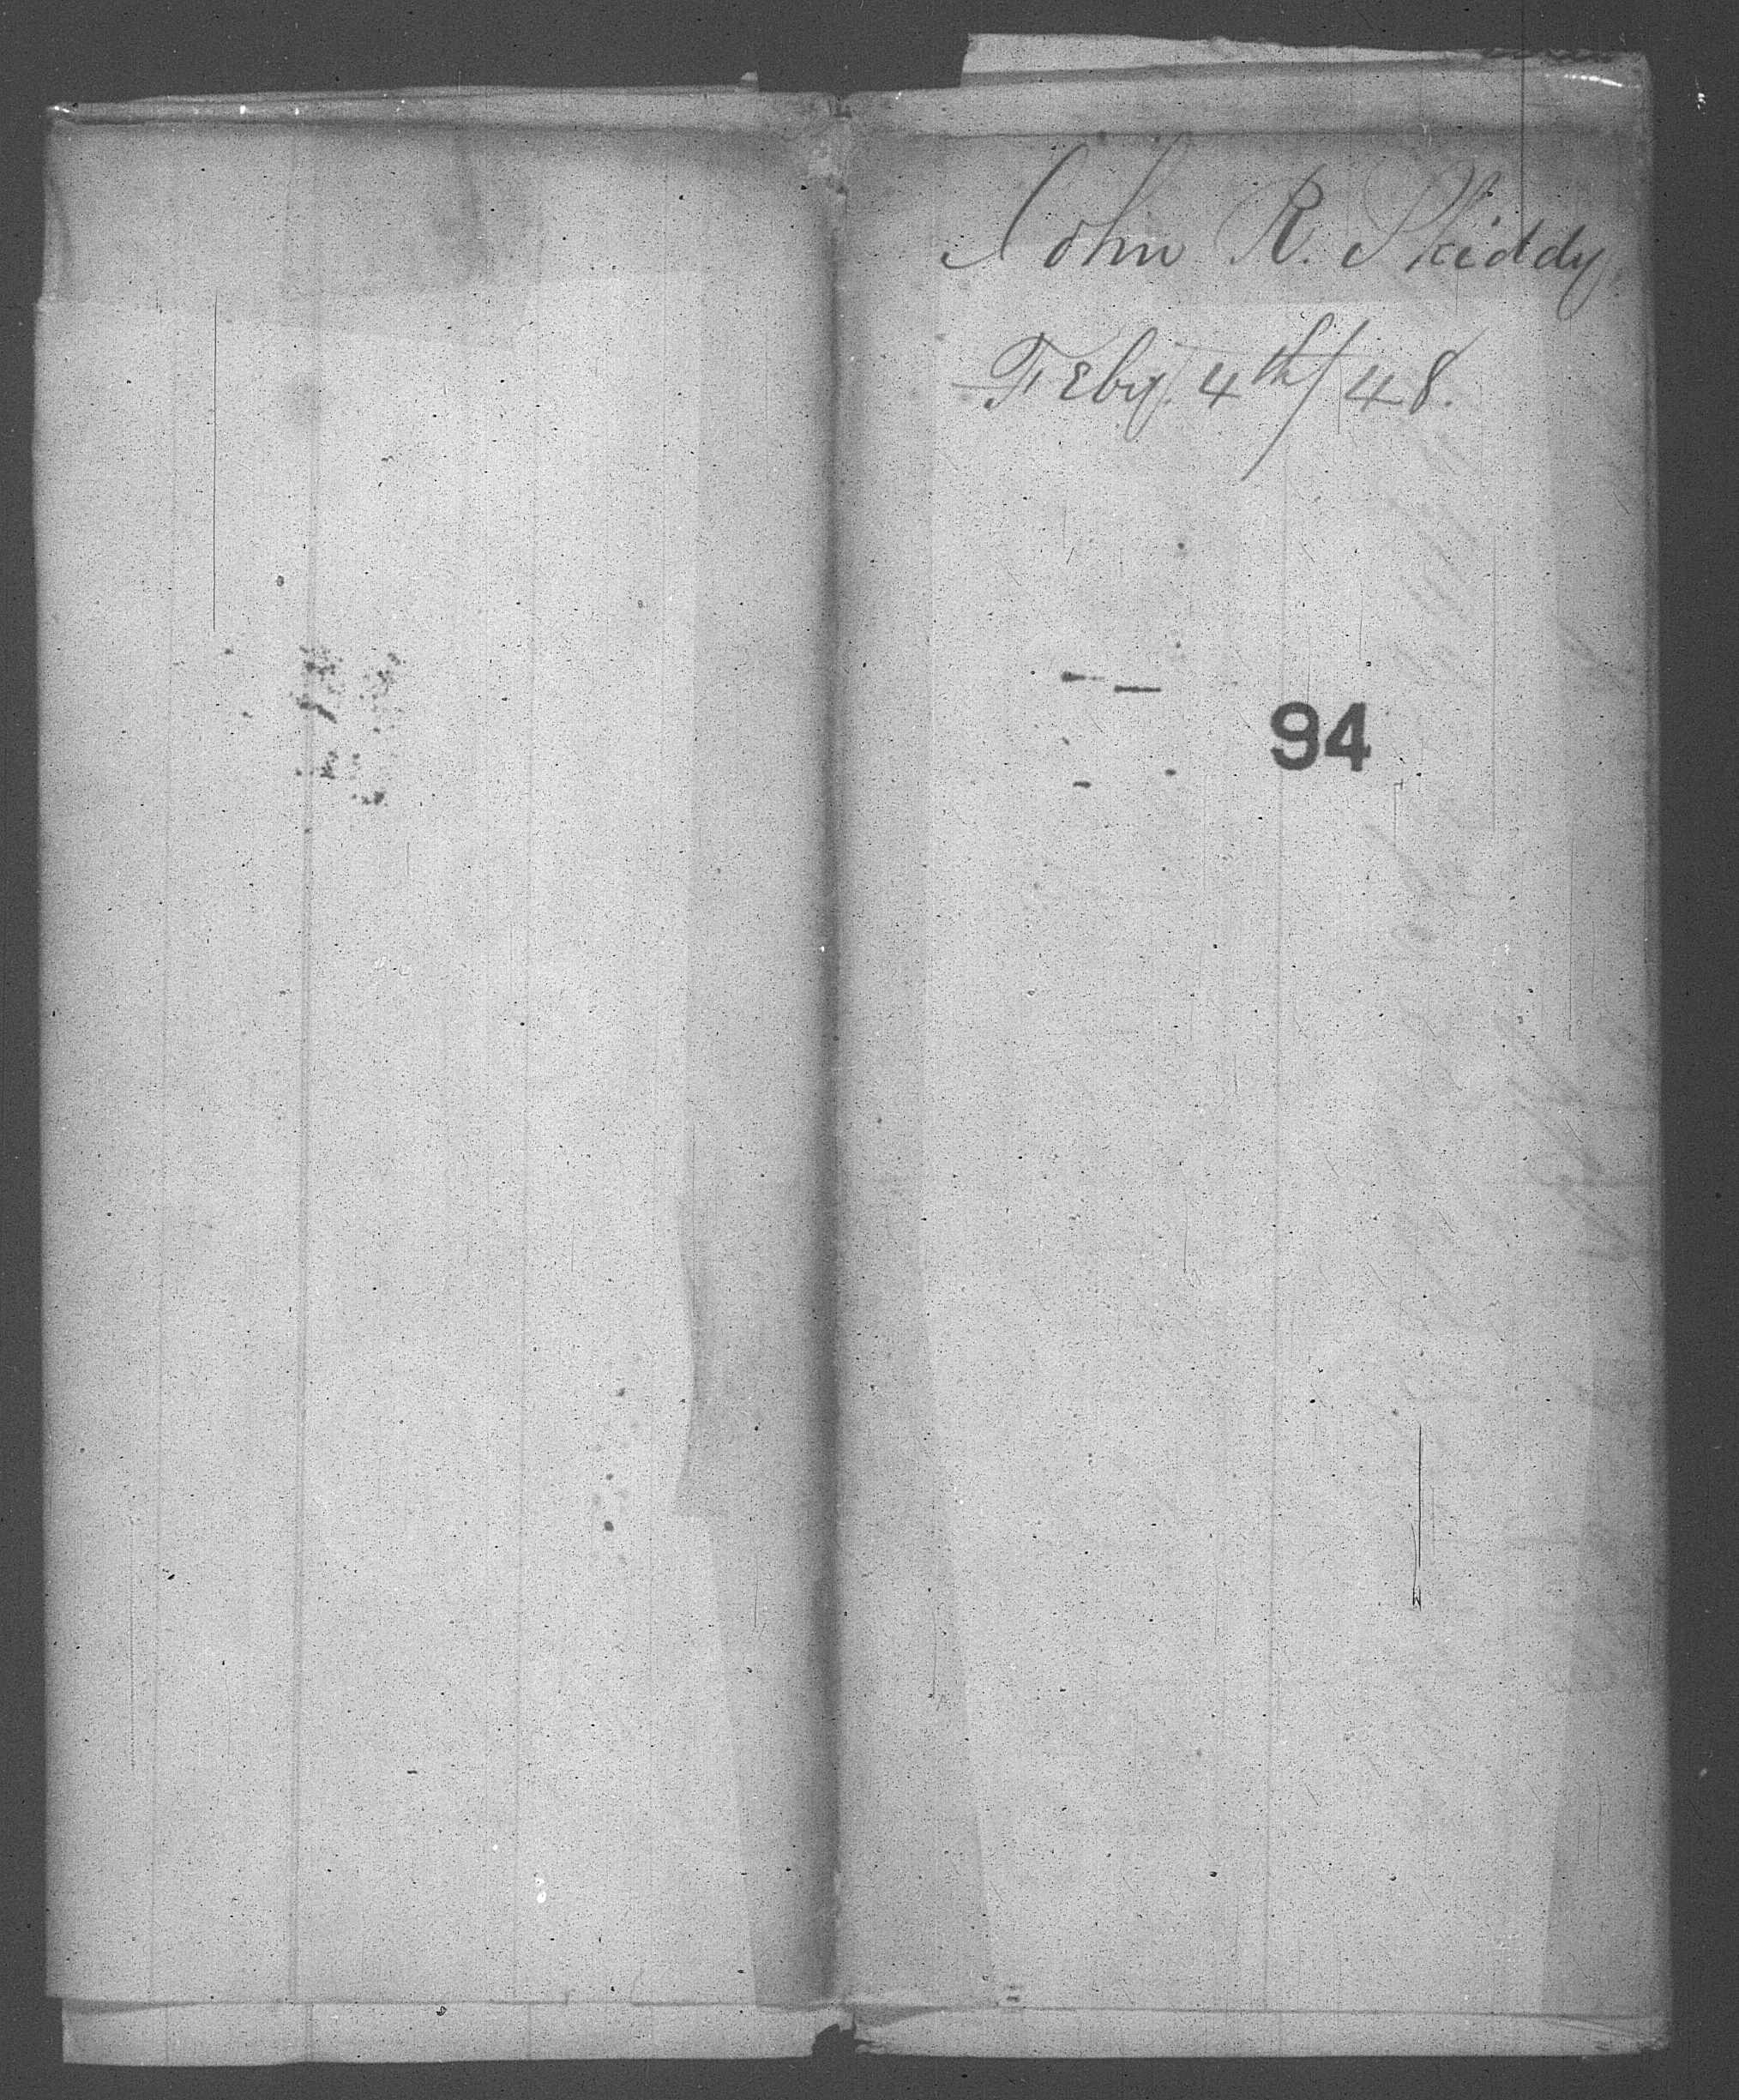 John R. Skiddy
Feby. 4th/48.
94